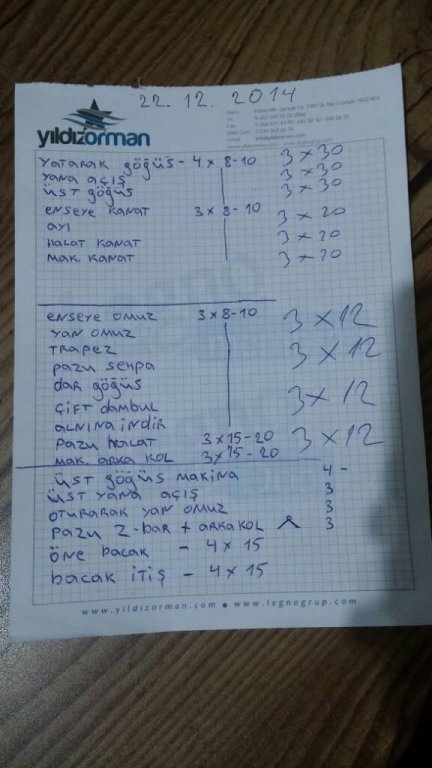 22.12.2014
yıldızorman
YATARAK göğüs - 4 x 8-10 3 x 30
YANA AÇIŞ 3 x 30
ÜST göğüs 3 x 30
enseye KANAT 3 x 8-10 3 x 20
AYI
HALAT KANAT 3 x 20
MAK. KANAT 3 x 20
enseye omuz 3 x 8-10 3 x 12
YAN omuz
TRAPEZ 3 x 12
pazu sehpa
DAR göğüs
ÇİFT DAMBUL 3 x 12
ALNINA indir
Pazu HALAT 3 x 15-20 3 x 12
MAK. ARKA KOL 3 x 15-20
ÜST göğüs MAKİNA 4 -
ÜST YANA AÇIŞ 3
OTURARAK YAN omuz 3
Pazu Z-bar + ARKAKOL 3
öne bacak - 4 x 15
bacak itiş - 4 x 15
www.yildizorman.com ● www.legnogrup.com